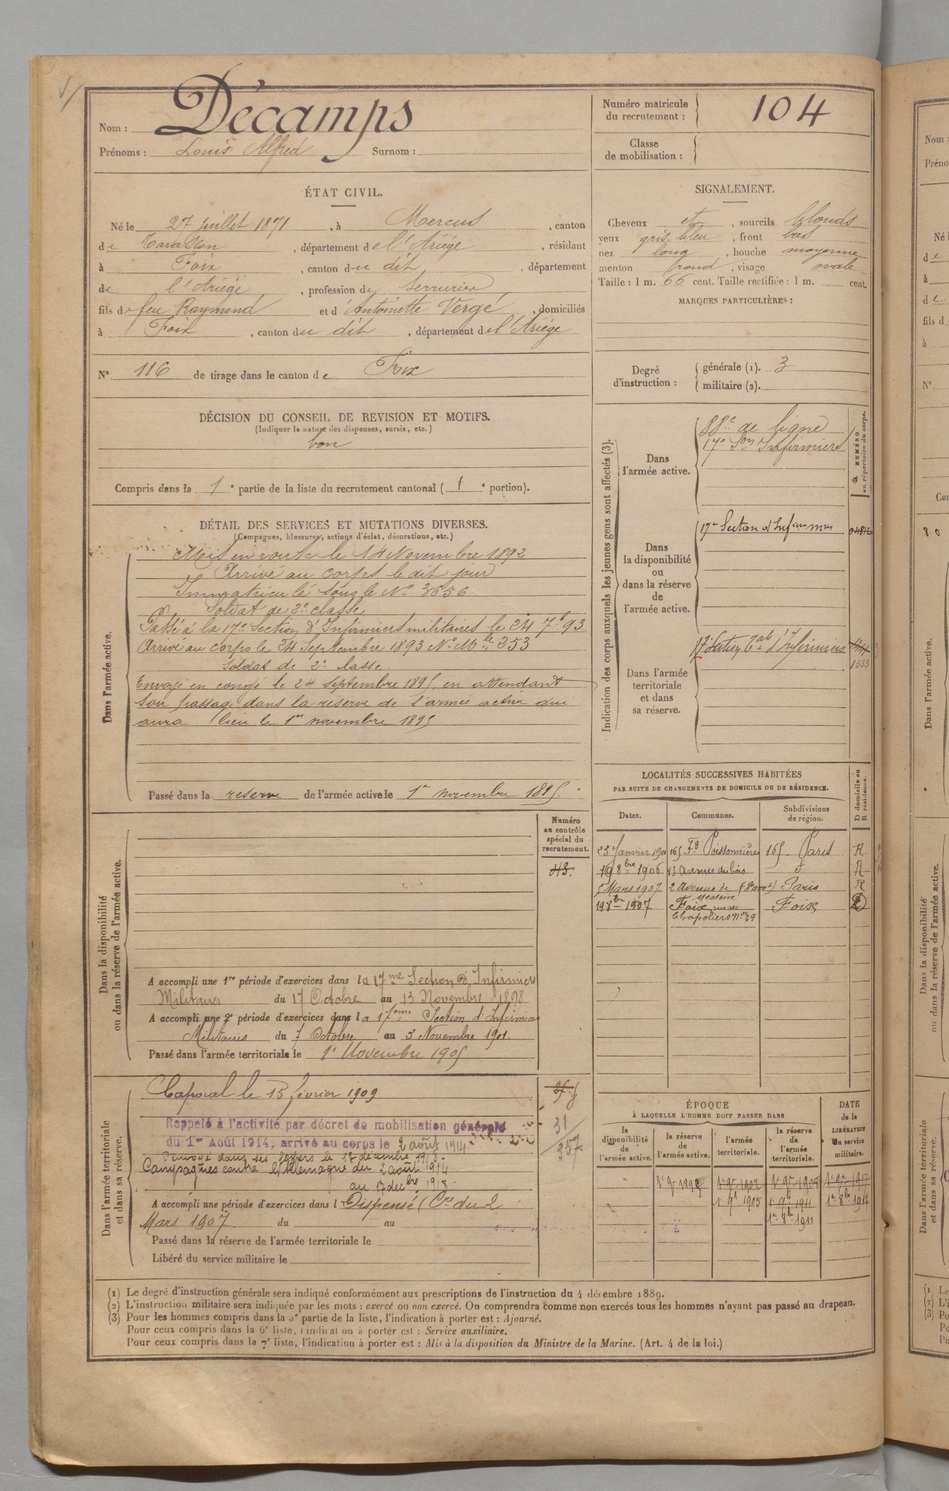 Nom : Décamps
Prénoms : Louis Alfred Surnom :
Numéro matricule du recrutement : 104
Classe de mobilisation :
ÉTAT CIVIL.
Né le 27 Juillet 1871, à Mercus, canton
de Tarascon, département de l'Ariège, résidant
à Foix, canton du dit, département
de l'Ariège, profession de Serrurier
fils de feu Raymond et d'Antoinette Vergé, domiciliés
à Foix, canton du dit, département de l'Ariège
N° 116 de tirage dans le canton de Foix
DÉCISION DU CONSEIL DE REVISION ET MOTIFS.
(Indiquer la nature des dispenses, sursis, etc.)
bon
Compris dans la 1e partie de la liste du recrutement cantonal (1e portion).
DÉTAIL DES SERVICES ET MUTATIONS DIVERSES.
(Campagnes, blessures, actions d'éclat, décorations, etc.)
Dans l'armée active.
Mis en route le 14 Novembre 1892
Arrivé au corps le dit jour
Immatriculé sous le N° 3656
Soldat de 2e classe
Passé à la 17e Section d'Infirmiers militaires le 24 7bre 93
Arrivé au corps le 24 Septembre 1893 N° Mle 353
Soldat de 2e classe.
Envoyé en congé le 24 septembre 1895, en attendant
son passage dans la réserve de l'armée active qui
aura lieu le 1er novembre 1895
Passé dans la réserve de l'armée active le 1er novembre 1895.
Dans la disponibilité ou dans la réserve de l'armée active.
Numéro au contrôle spécial du recrutement.
A accompli une 1re période d'exercices dans la 17me Section d'Infirmiers
Militaires du 17 Octobre au 13 Novembre 1898
A accompli une 2e période d'exercices dans la 17eme Section d'Infirmiers
Militaires du 7 Octobre au 3 Novembre 1901.
Passé dans l'armée territoriale le 1er Novembre 1905
Dans l'armée territoriale et dans sa réserve.
Caporal le 13 février 1909
Rappelé à l'activité par décret de mobilisation générale
du 1er Août 1914, arrivé au corps le 2 août 1914
Campagnes contre l'Allemagne du 2 août 1914
au
31
357
A accompli une période d'exercices dans l Dispensé (Cre du 2
Mars 1907. du au
Passé dans la réserve de l'armée territoriale le
Libéré du service militaire le
SIGNALEMENT.
Cheveux et, sourcils blonds
yeux gris bleu, front bas
nez long, bouche moyenne
menton rond, visage ovale
Taille : 1 m. 66 cent. Taille rectifiée : 1 m. cent.
MARQUES PARTICULIÈRES :
Degré d'instruction : générale (1). 3
militaire (2).
Indication des corps auxquels les jeunes gens sont affectés (3).
Dans l'armée active.
88e de ligne
17e Son Infirmiers
Dans la disponibilité ou dans la réserve de l'armée active.
17e Section d'Infirmiers
Dans l'armée territoriale et dans sa réserve.
1333
LOCALITÉS SUCCESSIVES HABITÉES
PAR SUITE DE CHANGEMENTS DE DOMICILE OU DE RÉSIDENCE.
Dates. Communes. Subdivisions de région. D domicile ou R résidence.
23 Janvier 1900 165 Fg Poissonnière Paris R
1906
5 Mars 1907 2 Avenue de Paris R
1907 Foix Foix D
ÉPOQUE
À LAQUELLE L'HOMME DOIT PASSER DANS
la disponibilité de l'armée active. la réserve de l'armée active. l'armée territoriale. la réserve de l'armée territoriale.
DATE de la LIBÉRATION du service militaire.
(1) Le degré d'instruction générale sera indiqué conformément aux prescriptions de l'instruction du 4 décembre 1889.
(2) L'instruction militaire sera indiquée par les mots : exercé ou non exercé. On comprendra comme non exercés tous les hommes n'ayant pas passé au drapeau.
(3) Pour les hommes compris dans la 3e partie de la liste, l'indication à porter est : Ajourné.
Pour ceux compris dans la 6e liste, l'indication à porter est : Service auxiliaire.
Pour ceux compris dans la 7e liste, l'indication à porter est : Mis à la disposition du Ministre de la Marine. (Art. 4 de la loi.)